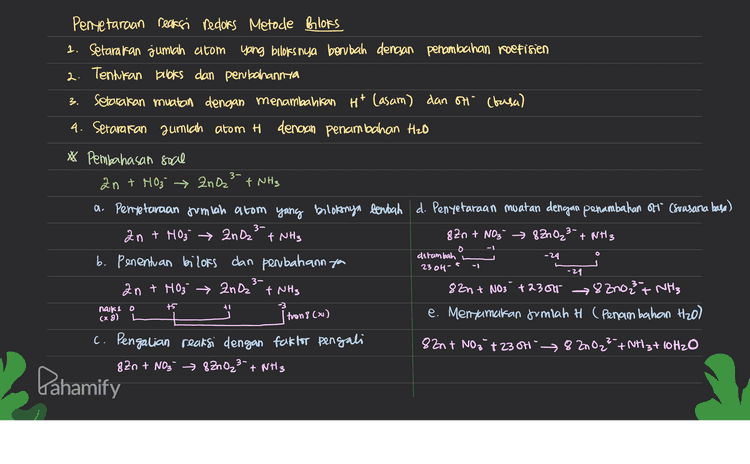 Penyetaraan reaksi redoks Metode Biloks
1. Setarakan jumlah atom yang biloksnya berubah dengan penambahan koefisien
2. Tentukan biloks dan perubahannya
3. Setarakan muatan dengan menambahkan H⁺ (asam) dan OH⁻ (basa)
4. Setarakan jumlah atom H dengan penambahan H₂O
※ Pembahasan soal
Zn + NO₃⁻ → ZnO₂³⁻ + NH₃
a. Penyetaraan jumlah atom yang biloksnya berubah
Zn + NO₃⁻ → ZnO₂³⁻ + NH₃
b. Penentuan biloks dan perubahannya
Zn + NO₃⁻ → ZnO₂³⁻ + NH₃
0 +5 +1 -3
naik 1 (x 8)
turun 8 (x1)
c. Pengalian reaksi dengan faktor pengali
8Zn + NO₃⁻ → 8ZnO₂³⁻ + NH₃
d. Penyetaraan muatan dengan penambahan OH⁻ (suasana basa)
8Zn + NO₃⁻ → 8ZnO₂³⁻ + NH₃
0 -1 -24 0
ditambah 23 OH⁻ ← -1 -24
8Zn + NO₃⁻ + 23OH⁻ → 8ZnO₂³⁻ + NH₃
e. Menyamakan jumlah H (Penambahan H₂O)
8Zn + NO₃⁻ + 23OH⁻ → 8ZnO₂³⁻ + NH₃ + 10H₂O
Pahamify